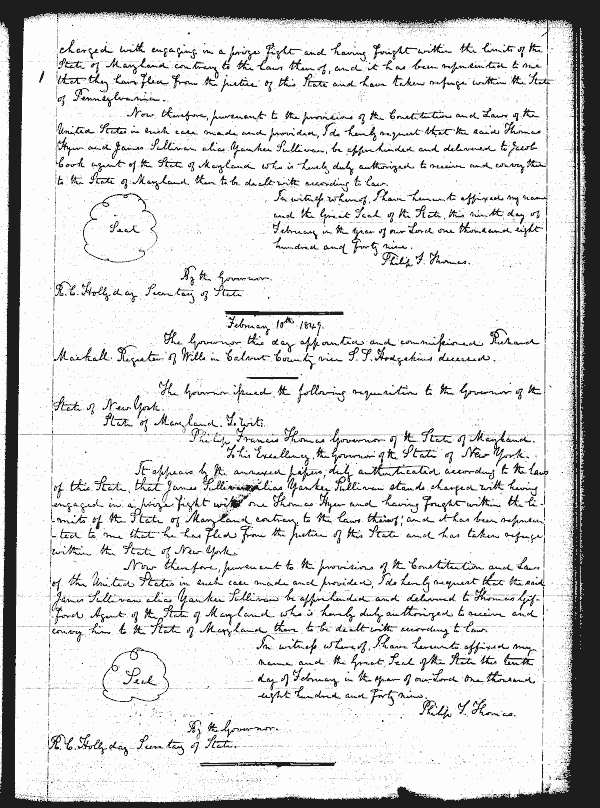 charged with engaging in a prize fight and having fought within the limits of the
State of Maryland contrary to the laws thereof, and it has been represented to me
that they have fled from the justice of this State and have taken refuge within the State
of Pennsylvania.
Now therefore, pursuant to the provisions of the Constitution and Laws of the
United States in such case made and provided, I do hereby request that the said Thomas
Hyer and James Sullivan alias Yankee Sullivan, be apprehended and delivered to Jacob
Cook agent of the State of Maryland who is hereby duly authorized to receive and convey them
to the State of Maryland there to be dealt with according to law.
In witness whereof, I have hereunto affixed my name
and the Great Seal of the State, this ninth day of
February in the year of our Lord one thousand eight
hundred and forty nine.
Seal
Philip F. Thomas.
By the Governor.
R. C. Hollyday Secretary of State
February 10th 1849.
The Governor this day appointed and commissioned Richard
Mackall Register of Wills in Calvert County vice
The Governor issued the following requisition to the Governor of the
State of New York.
State of Maryland. To wit:
Philip Francis Thomas Governor of the State of Maryland.
To his Excellency the Governor of the State of New York.
It appears by the annexed papers, duly authenticated according to the laws
of this State, that James Sullivan alias Yankee Sullivan stands charged with having
engaged in a prize fight with one Thomas Hyer and having fought within the li-
-mits of the State of Maryland contrary to the laws thereof; and it has been represen-
-ted to me that he has fled from the justice of this State and has taken refuge
within the State of New York.
Now therefore, pursuant to the provisions of the Constitution and Laws
of the United States in such case made and provided, I do hereby request that the said
James Sullivan alias Yankee Sullivan be apprehended and delivered to Thomas Gif-
ford Agent of the State of Maryland who is hereby duly authorized to receive and
convey him to the State of Maryland there to be dealt with according to law.
In witness whereof, I have hereunto affixed my
name and the Great Seal of the State this tenth
day of February in the year of our Lord one thousand
eight hundred and forty nine.
Seal
Philip F. Thomas.
By the Governor.
R. C. Hollyday Secretary of State.